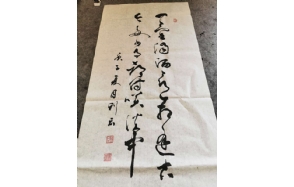 一壶浊酒喜相逢古
今多少事都付笑谈中
庚子夏月